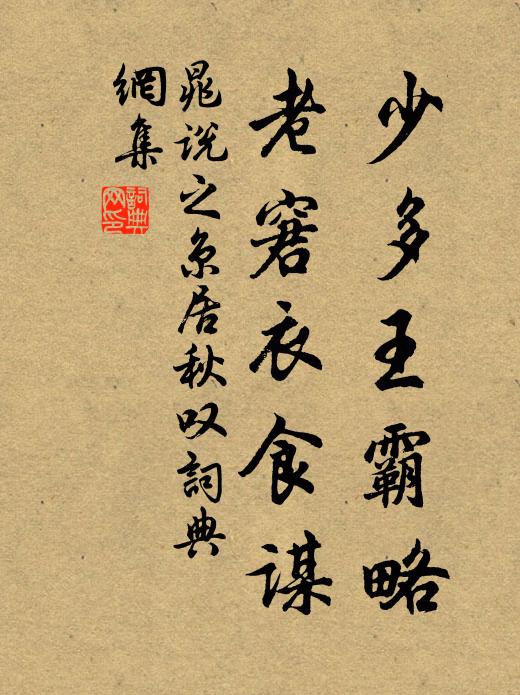 少多王霸略
老窘衣食谋
晁说之京居秋叹詞典
網集
詞典
网印